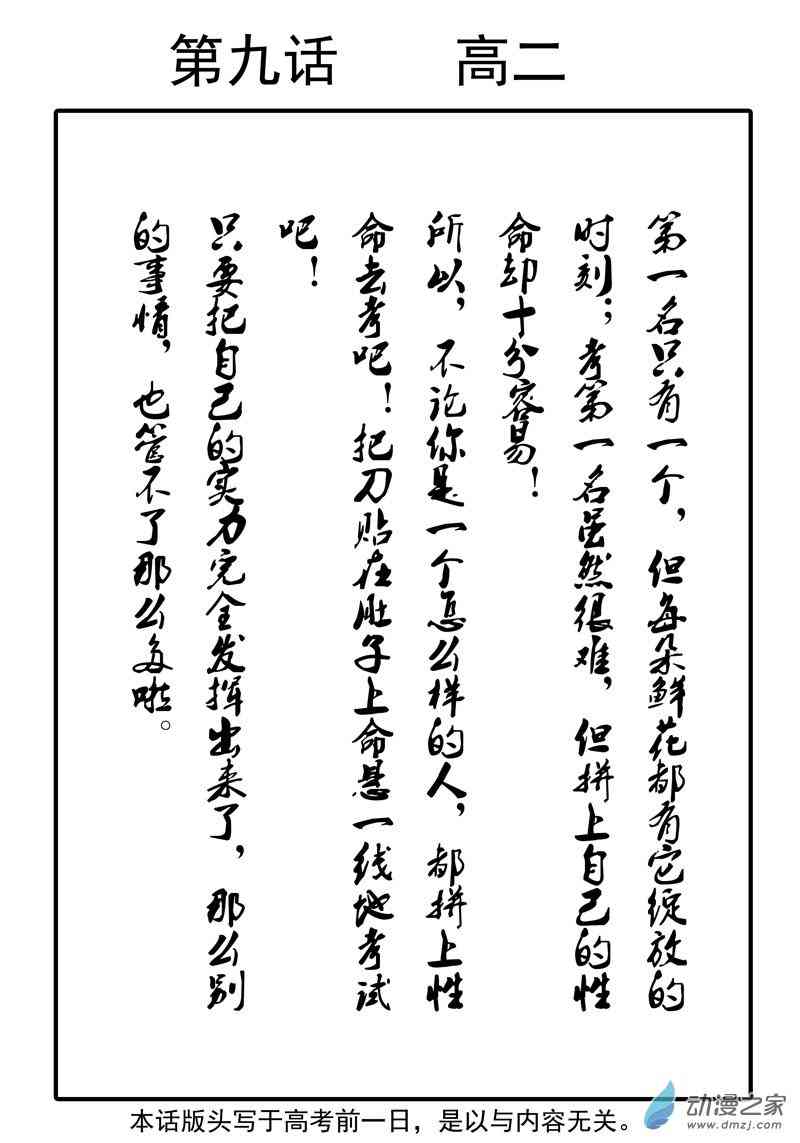 第九话 高二
第一名只有一个，但每朵鲜花都有它绽放的
时刻；考第一名虽然很难，但拼上自己的性
命却十分容易！
所以，不论你是一个怎么样的人，都拼上性
命去考吧！把刀贴在肚子上命悬一线地考试
吧！
只要把自己的实力完全发挥出来了，那么别
的事情，也管不了那么多啦。
本话版头写于高考前一日，是以与内容无关。
动漫之家
www.dmzj.com